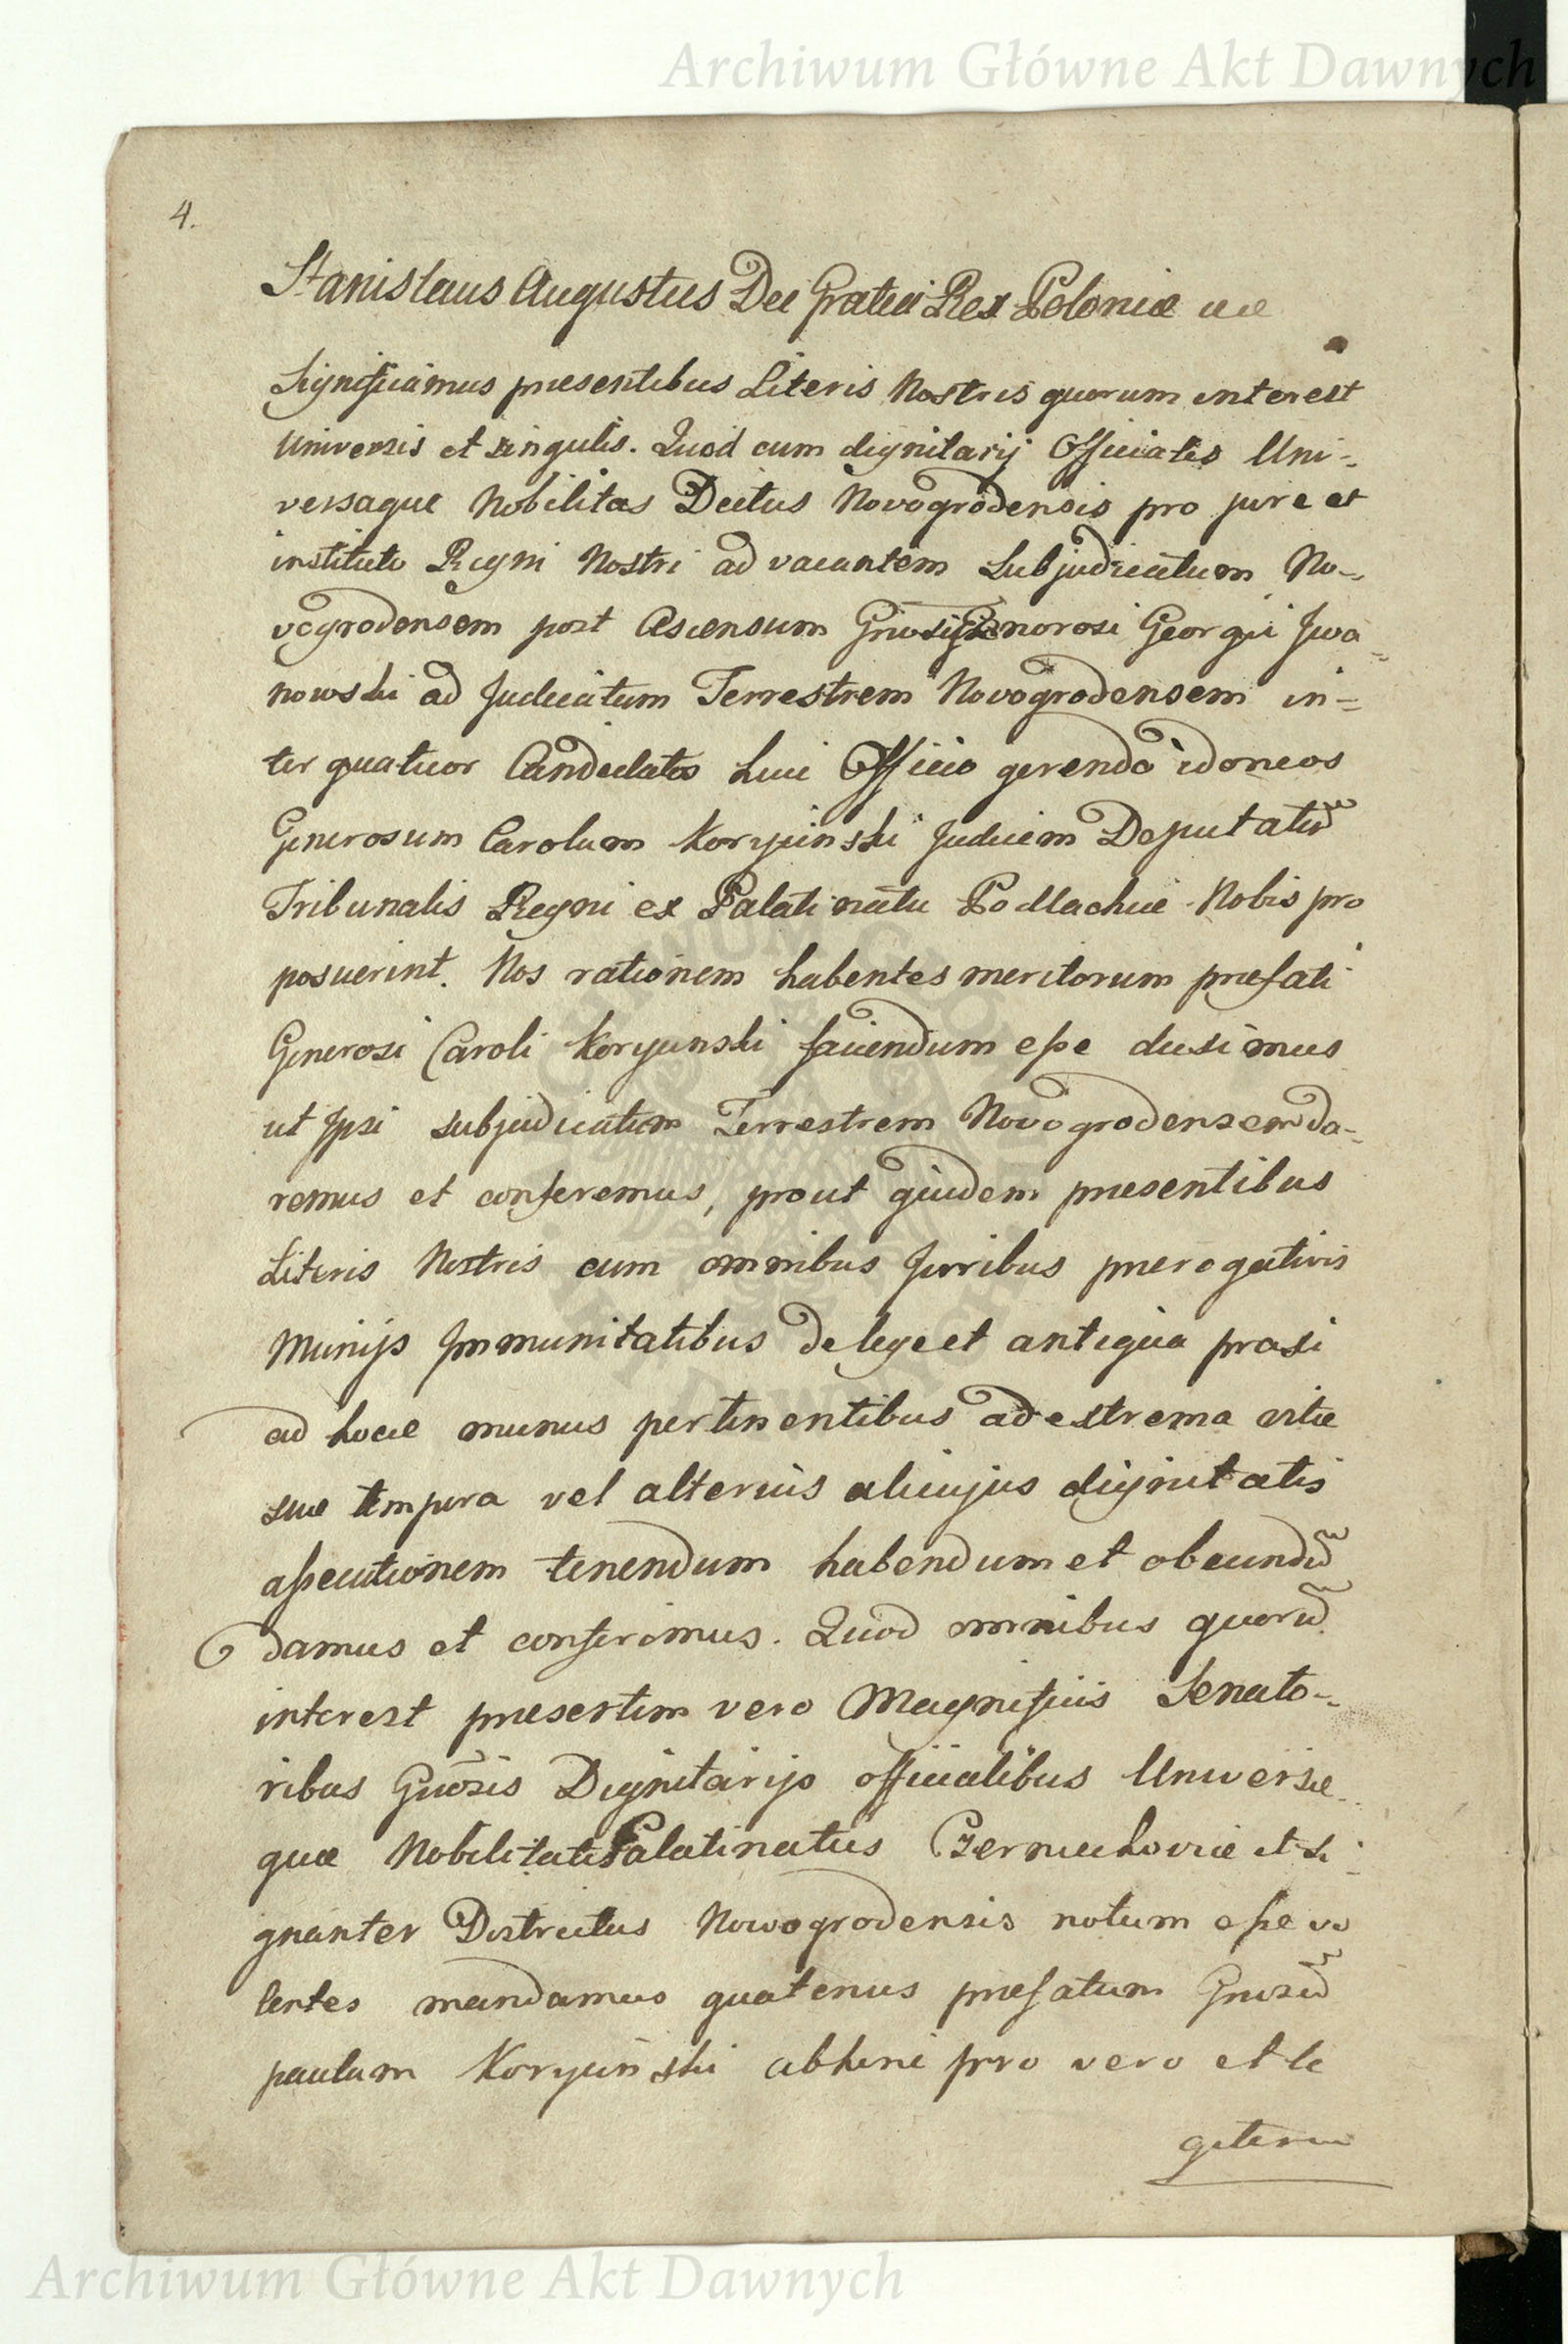 Archiwum Główne Akt Dawnych
4.
Stanislaus Augustus Dei Gratia Rex Poloniæ
Significamus præsentibus Literis Nostris quorum interest
Universis et singulis. Quod cum dignitarij Officiales Uni=
versaque Nobilitas Dctus Novogrodensis pro jure et
instituto Regni Nostri ad vacantem Subjudicatum No=
vogrodensem post Ascensum Generosi Georgii Jwa=
nowski ad Judicatum Terrestrem Novogrodensem in=
ter quatuor Candidatos huic Officio gerendo idoneos
Generosum Carolum Korycinski Judicem Deputatũ
Tribunalis Regni ex Palatinatu Podlachiæ Nobis pro
posuerint. Nos rationem habentes meritorum præfati
Generosi Caroli Korycinski faciendum esse duximus
ut Jpsi subjudicatum Terrestrem Novogrodensem da=
remus et conferemus, prout quidem præsentibus
Literis Nostris cum omnibus Juribus prærogativis
Munijs Jmmunitatibus de lege et antiqua praxi
ad hocce munus pertinentibus ad extrema vitæ
suæ tempora vel alterius alicujus dignitatis
assecutionem tenendum habendum et obeundũ
damus et conferimus. Quod omnibus quorũ
interest præsertim vero Magnificis Senato=
ribus Gñosis Dignitarijs officialibus Universæ
quæ Nobilitati Palatinatus Czerniechoviæ et si=
gnanter Districtus Nowogrodensis notum esse vo
lentes mandamus quatenus præfatum Gnosũ
paulum Korycinski abhinc pro vero et le
gitimo
Archiwum Główne Akt Dawnych